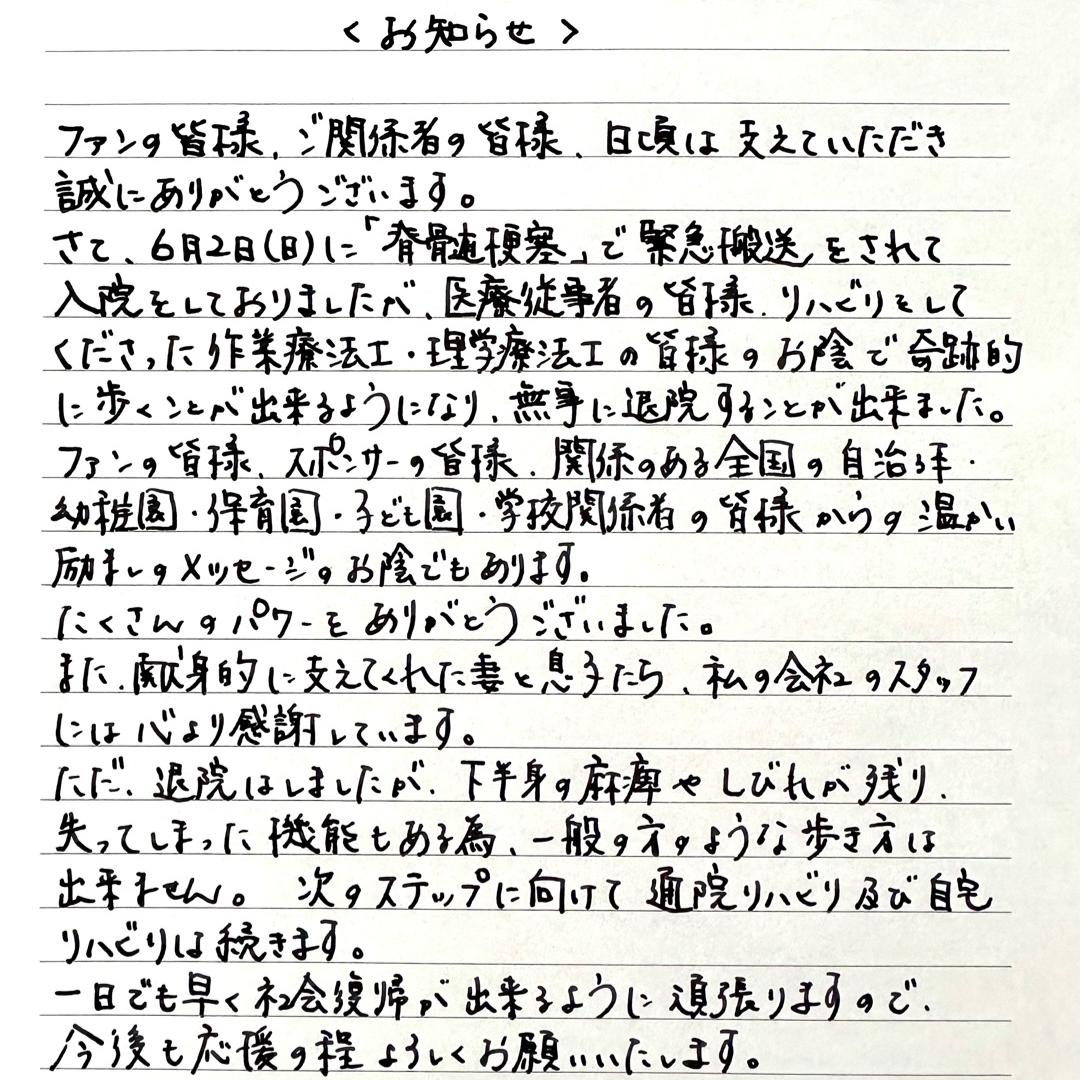 < お知らせ >
ファンの皆様、ご関係者の皆様、日頃は支えていただき
誠にありがとうございます。
さて、6月2日(日)に「脊髄梗塞」で緊急搬送をされて
入院をしておりましたが、医療従事者の皆様、リハビリをして
くださった作業療法工・理学療法工の皆様のお陰で奇跡的
に歩くことが出来るようになり、無事に退院することが出来ました。
ファンの皆様、スポンサーの皆様、関係のある全国の自治体・
幼稚園・保育園・子ども園・学校関係者の皆様からの温かい
励ましのメッセージのお陰でもあります。
たくさんのパワーをありがとうございました。
また、献身的に支えてくれた妻と息子たち、私の会社のスタッフ
には心より感謝しています。
ただ、退院はしましたが、下半身の麻痺やしびれが残り、
失ってしまった機能もある為、一般の方のような歩き方は
出来ません。 次のステップに向けて通院リハビリ及び自宅
リハビリは続きます。
一日でも早く社会復帰が出来るように頑張りますので、
今後も応援の程よろしくお願いいたします。